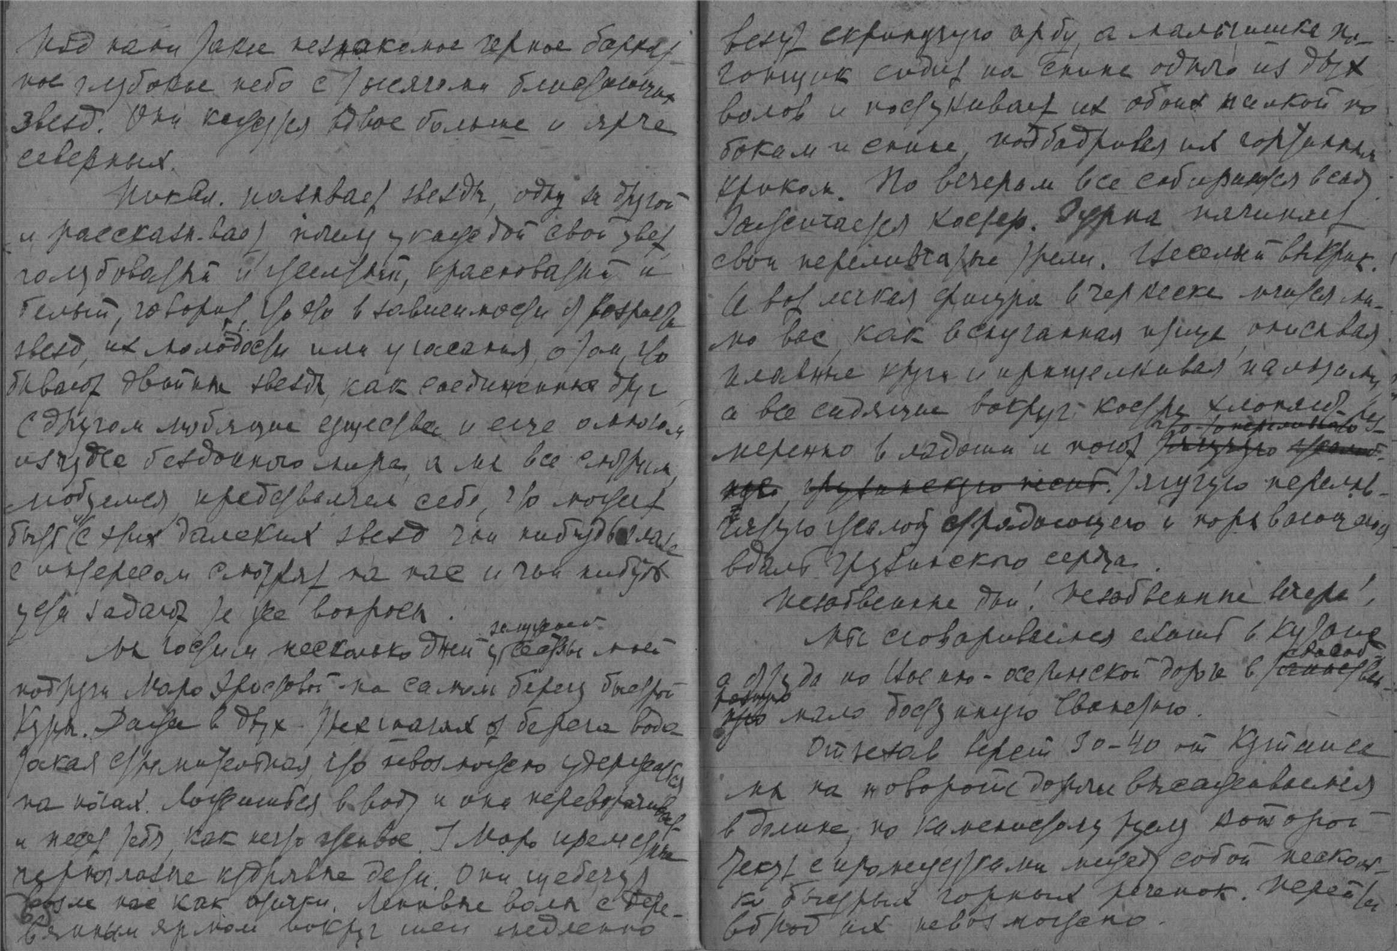 Над нами такое незнакомое черное бархат-
ное глубокое небо с тысячами блистающих
звезд. Они кажутся вдвое больше и ярче
северных.
называет звезды, одну за другой
и рассказывает почему у каждой свой цвет
голубоватый и желтый, красноватый и
белый, говорит, что это в зависимости от возраста
звезд, их молодости или угасания, о том, что
бывают двойные звезды, как соединенные друг
с другом любящие существа и еще о многом
из чудес бездонного мира, а мы все смотрим,
любуемся, представляем себе, что может
быть с этих далеких звезд чьи нибудь глаза
с интересом смотрят на нас и чьи нибудь
уста задают те же вопросы.
Мы гостим несколько дней у замужней сестры моей
подруги Маро на самом берегу быстрой
Куры. Даже в двух-трех шагах от берега вода
такая стремительная, что невозможно удержаться
на ногах. Ложишься в воду и она переворачивает
и несет тебя, как нечто живое. У Маро прелестные
черноглазые кудрявые дети. Они щебечут
возле нас как птички. Ленивые волы с дере-
вянным ярмом вокруг шеи медленно
везут скрипучую арбу, а мальчишка по-
гонщик сидит на спине одного из двух
волов и постукивает их обоих палкой по
бокам и спине, подбадривая их гортанным
криком. По вечерам все собираются в саду.
Зажигается костер. Зурна начинает
свои переливчатые трели. Веселый выкрик.
И вот легкая фигура в черкеске мчится ми-
мо вас, как вспуганная птица описывая
плавные круги и прищелкивая пальцами,
а все сидящие вокруг костра хлопают раз-
меренно в ладоши и поют
тягучую перелив-
чатую жалобу страдающего и порывающегося
вдаль грузинского сердца.
Незабвенные дни! Незабвенные вечера!
Мы сговариваемся ехать в Кутаис
а оттуда по Военно-осетинской дороге в
мало доступную Сванетию.
Отъехав верст 30-40 от Кутаиса
мы на повороте дороги высаживаемся
в долине, по каменистому руслу которой
текут с промежутками между собой несколь-
ко быстрых горных речонок. Перейти
вброд их невозможно.